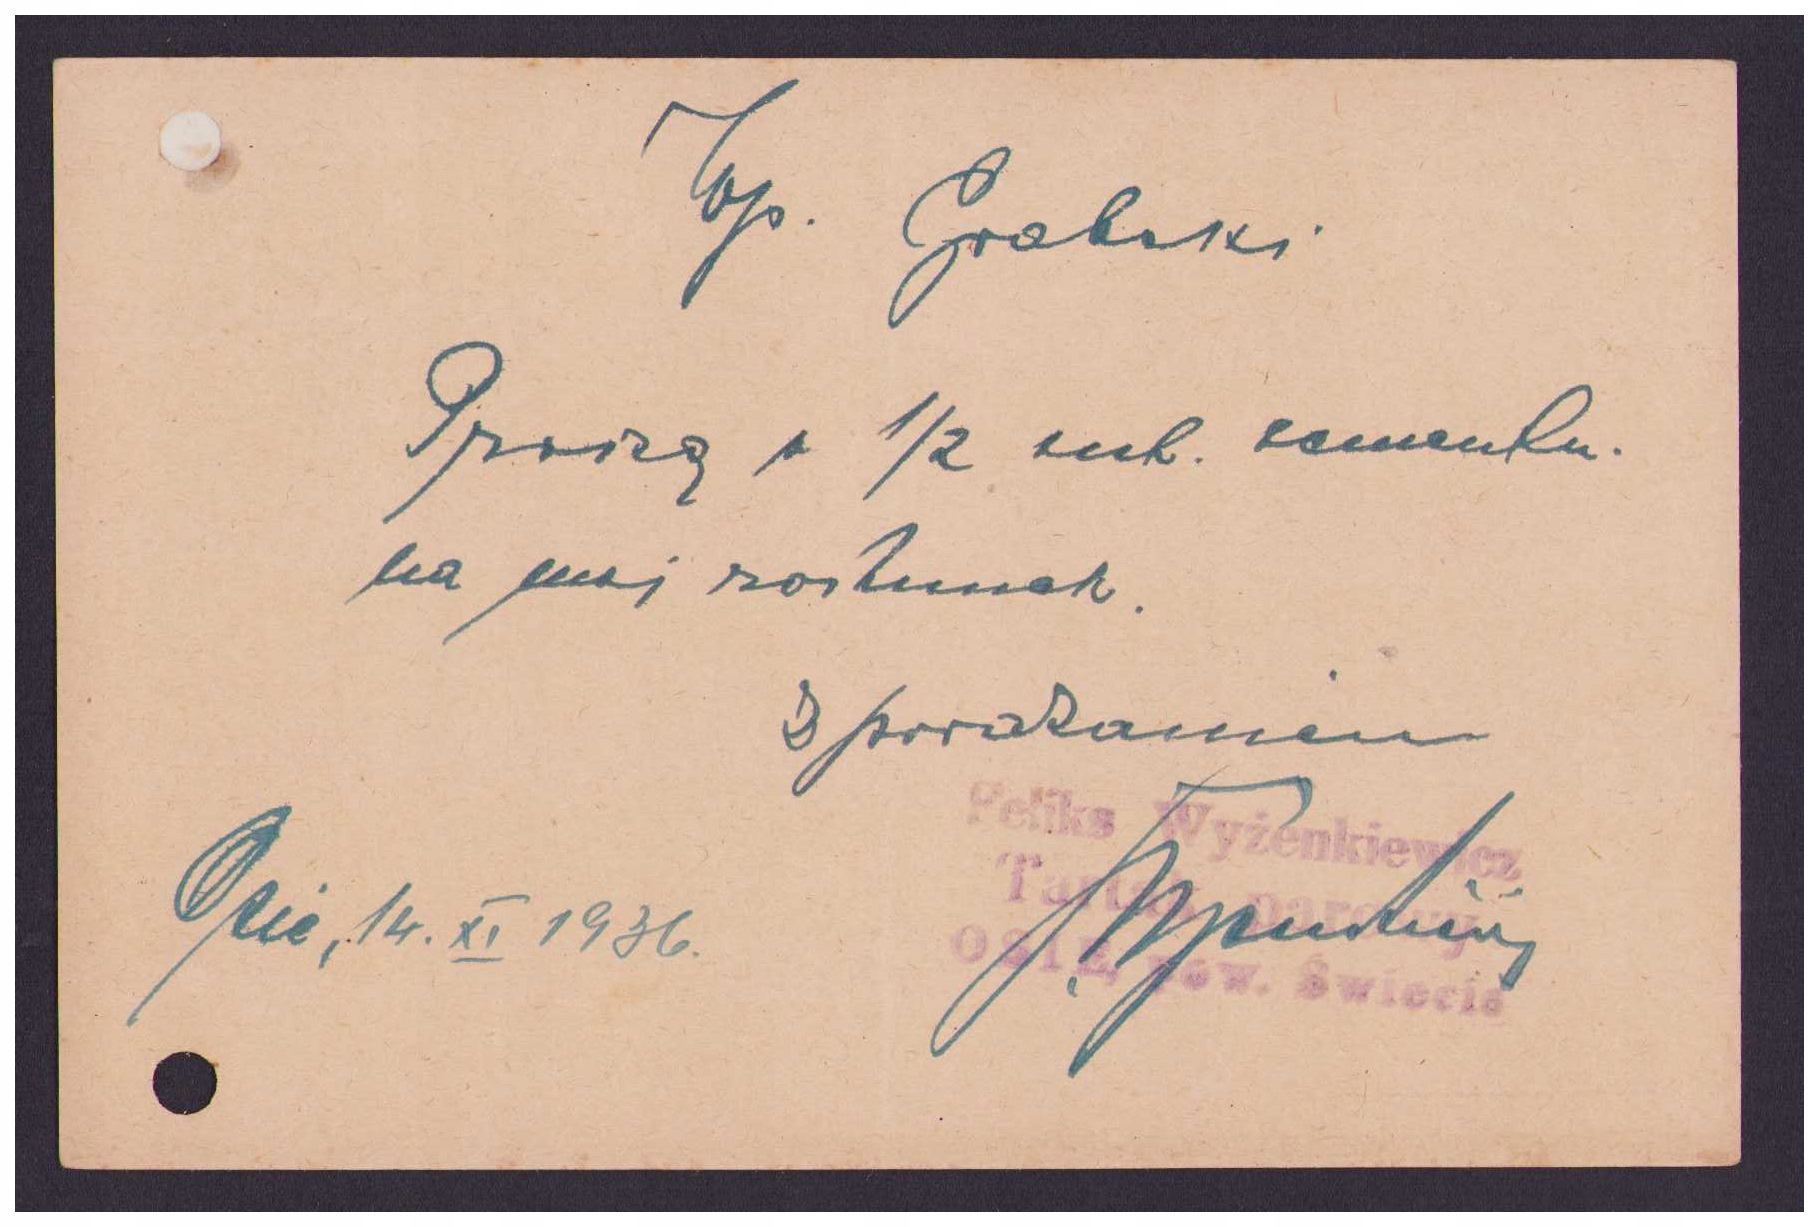 Wp. Grabski
Proszę o 1/2 cnt. cementu.
na mój rachunek.
Z poważaniem
Feliks Wyżenkiewicz
Tartak parowy
OSIE, pow. Świecie
Osie, 14. XI 1936.